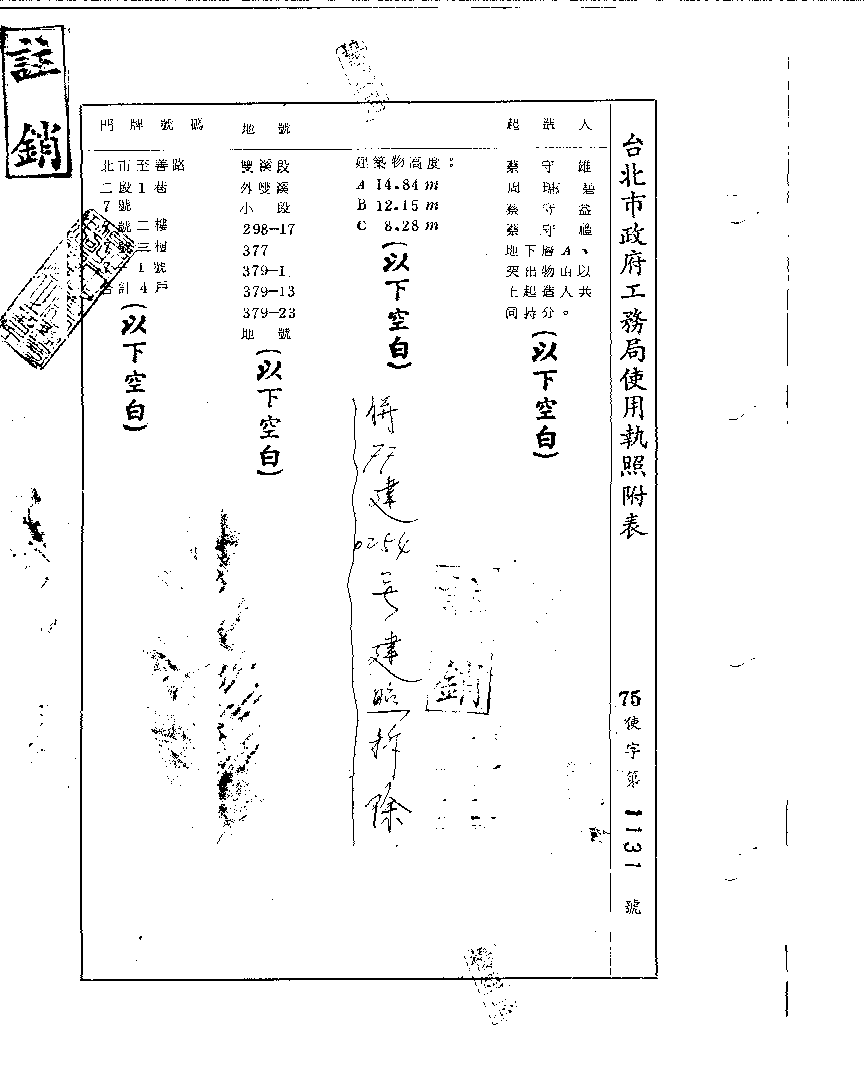 註銷
台北市政府工務局使用執照附表
75使字第1131號
起造人
蔡守雄
周瑞碧
蔡守益
蔡守禮
地下層A、
突出物由以
上起造人共
同持分。
(以下空白)
建築物高度：
A 14.84 m
B 12.15 m
C 8.28 m
(以下空白)
地號
雙溪段
外雙溪
小段
298-17
377
379-1
379-13
379-23
地號
(以下空白)
門牌號碼
北市至善路
二段1巷
7號
號二樓
號三樓
1號
合計4戶
(以下空白)
併77建0254号建照拆除
銷